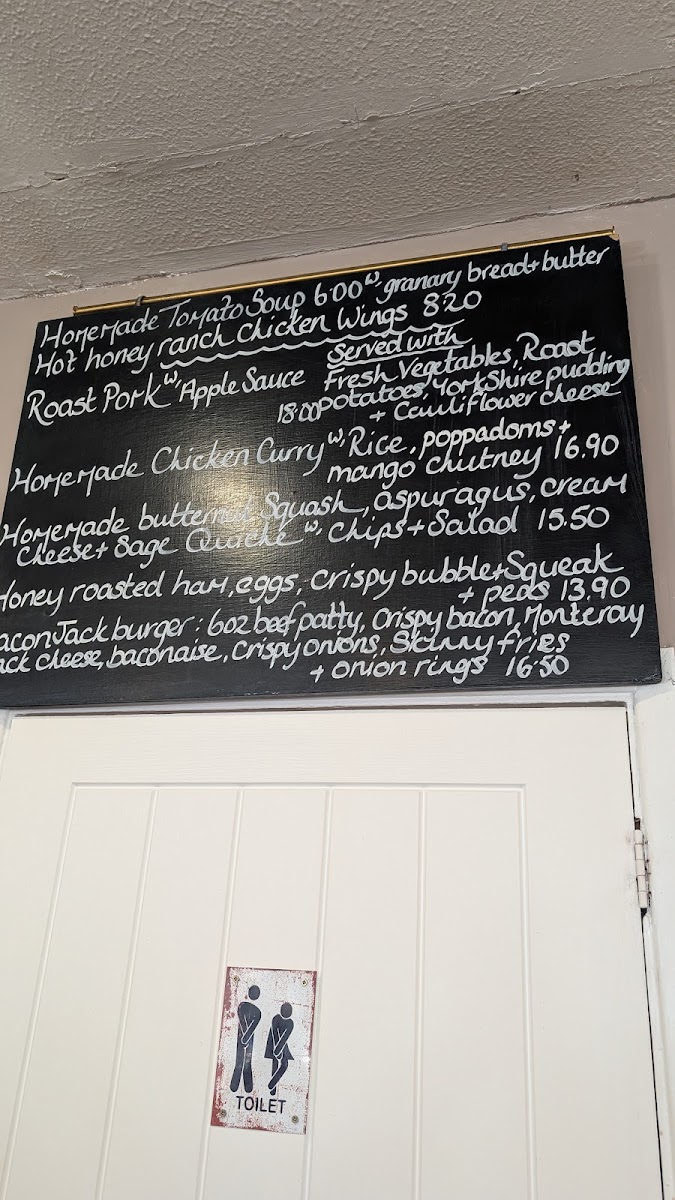 Homemade Tomato Soup 6.00 w, granary bread + butter
Hot honey ranch chicken Wings 8.20
Served with
Roast Pork w, Apple Sauce Fresh Vegetables, Roast
18.00 potatoes, Yorkshire pudding
+ Cauliflower cheese
Homemade Chicken Curry w, Rice, poppadoms +
mango chutney 16.90
Homemade butternut Squash, aspuragus, cream
cheese + Sage Quiche w, chips + Salad 15.50
Honey roasted ham, eggs, crispy bubble + Squeak
+ peas 13.90
acon Jack burger: 6oz beef patty, Crispy bacon, Monteray
ack cheese, baconaise, Crispy onions, Skinny fries
+ onion rings 16.50
TOILET